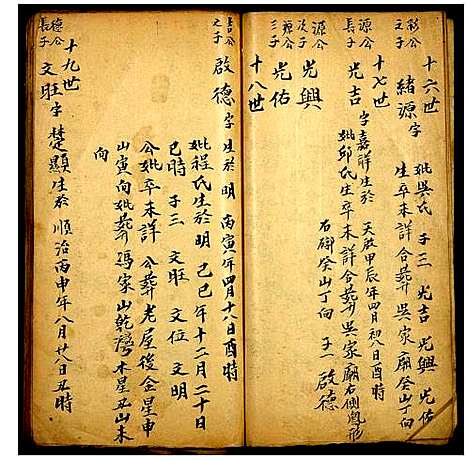 十六世
彩公之子
緒源 字
妣吳氏 子三 光吉 光興 光佑
生卒未詳合葬吳家廟癸山丁向
十七世
源公長子
光吉 字嘉祥生於天啟甲辰年四月初八日酉時
妣邱氏生卒未詳合葬吳家廟右側兜形
石磜癸山丁向 子一 啟德
源公次子
光興
源公三子
光佑
十八世
吉公之子
啟德 字
生於明丙寅年四月十八日酉時
妣程氏生於明己巳年十二月二十日
巳時 子三 文旺 文位 文明
公妣卒未詳 公葬老屋後金星申
山寅向妣葬馮家山乾灣木星丑山未
向
十九世
德公長子
文旺 字楚顯生於順治丙申年八月廿八日丑時